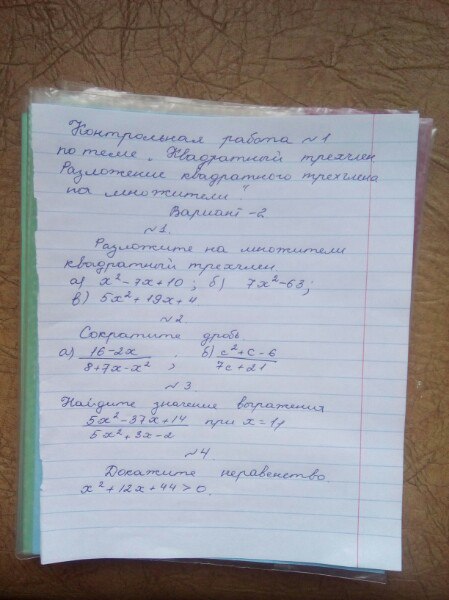 Контрольная работа №1
по теме „Квадратный трехчлен
Разложение квадратного трехчлена
на множители".
Вариант -2
№1.
Разложите на множители
квадратный трехчлен
а) x²-7x+10; б) 7x²-63;
в) 5x²+19x+4.
№2
Сократите дробь.
а) (16-2x)/(8+7x-x²); б) (c²+c-6)/(7c+21)
№3.
Найдите значение выражения
(5x²-37x+14)/(5x²+3x-2) при x=11
№4
Докажите неравенство.
x²+12x+44>0.